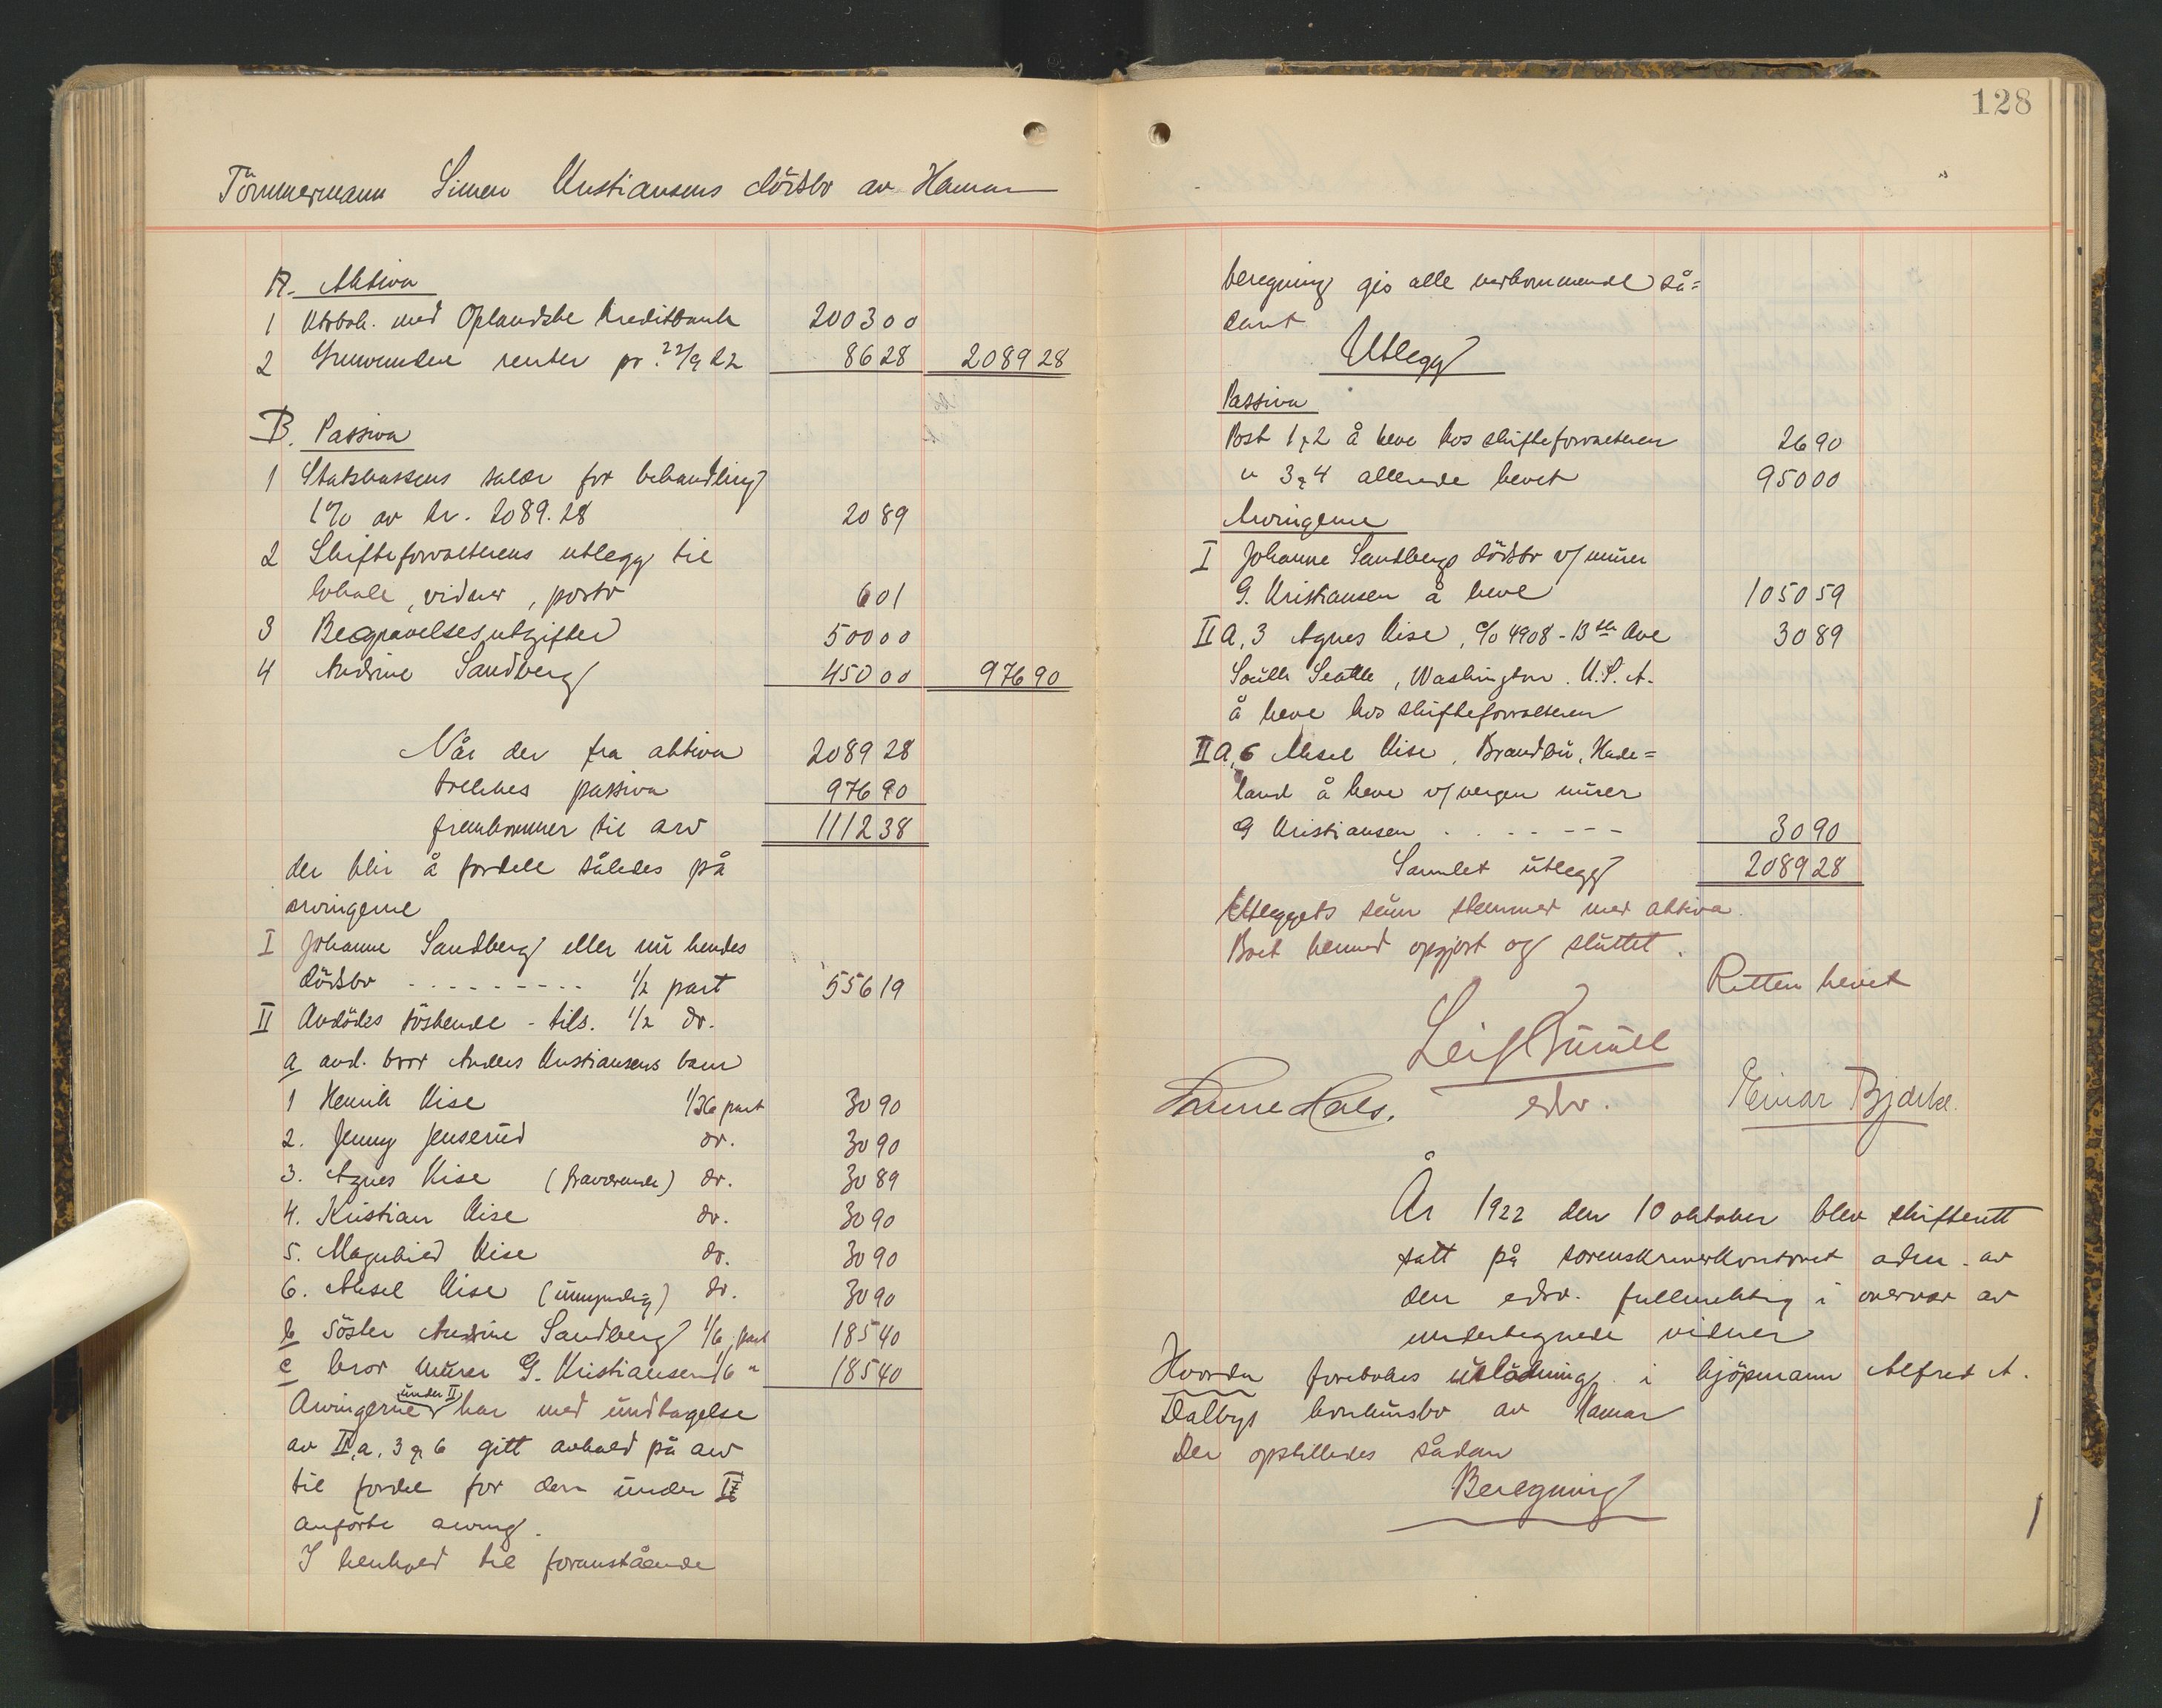 128
Tömmermann Simen Kristiansens dödsbo av Hamar
A. Aktiva
1 Ktrbok. med Oplandske Kreditbank 2003 00
2 renter pr. 22/9 22 86 28 2089 28
B. Passiva
1 Statskassens salær for behandling
1% av kr. 2089.28 20 89
2 Skifteforvalterens utlegg til
lokale, vidner, porto 6 01
3 Begravelsesutgifter 500 00
4 Andrine Sandberg 450 00 976 90
Når der fra aktiva 2089 28
trekkes passiva 976 90
fremkommer til arv 1112 38
der blir å fordele således på
arvingerne
I Johanne Sandberg eller nu hendes
dödsbo - - - - - - - - - 1/2 part 556 19
II Avdödes söskende - tils. 1/2 do.
a avd. bror Anders Kristiansens barn
1 Henrik Kise 1/36 part 30 90
2. Jenny Jenserud do. 30 90
3. Agnes Kise (fraværende) do. 30 89
4. Kristian Kise do. 30 90
5. Magnhild Kise do. 30 90
6. Aksel Kise (umyndig) do. 30 90
b Söster Andrine Sandberg 1/6 part 185 40
c bror murer G. Kristiansen 1/6 " 185 40
Arvingerne under II har med undtagelse
av II, a, 3 & 6 gitt avkald på arv
til fordel for den under I
anförte arving.
I henhold til foranstående
beregning gis alle vedkommende så=
dant
Utlegg
Passiva
Post 1 & 2 å heve hos skifteforvalteren 26 90
" 3 & 4 allerede hevet 950 00
Arvingerne
I Johanne Sandbergs dödsbo v/ murer
G. Kristiansen å heve 1050 59
II a, 3 Agnes Kise, c/o 4908 - 13th Ave 30 89
South Seattle, Washington. U.S.A.
å heve hos skifteforvalteren
II a, 6 Aksel Kise, Brandbu, Hade=
land å heve v/ vergen murer
G Kristiansen . . . - - - 30 90
Samlet utlegg 2089 28
Utleggets sum stemmer med aktiva.
Boet hermed opgjort og sluttet.
Retten hevet
Leif
edsv.
Einar Bjarke.
År 1922 den 10 oktober blev skifterett
satt på sorenskriverkontoret adm. av
den edsv. fullmektig i overvær av
undertegnede vidner
Hvorda foretokes utlodning i kjöpmann Alfred A.
Dalbys konkursbo av Hamar
Der opstilledes sådan
Beregning